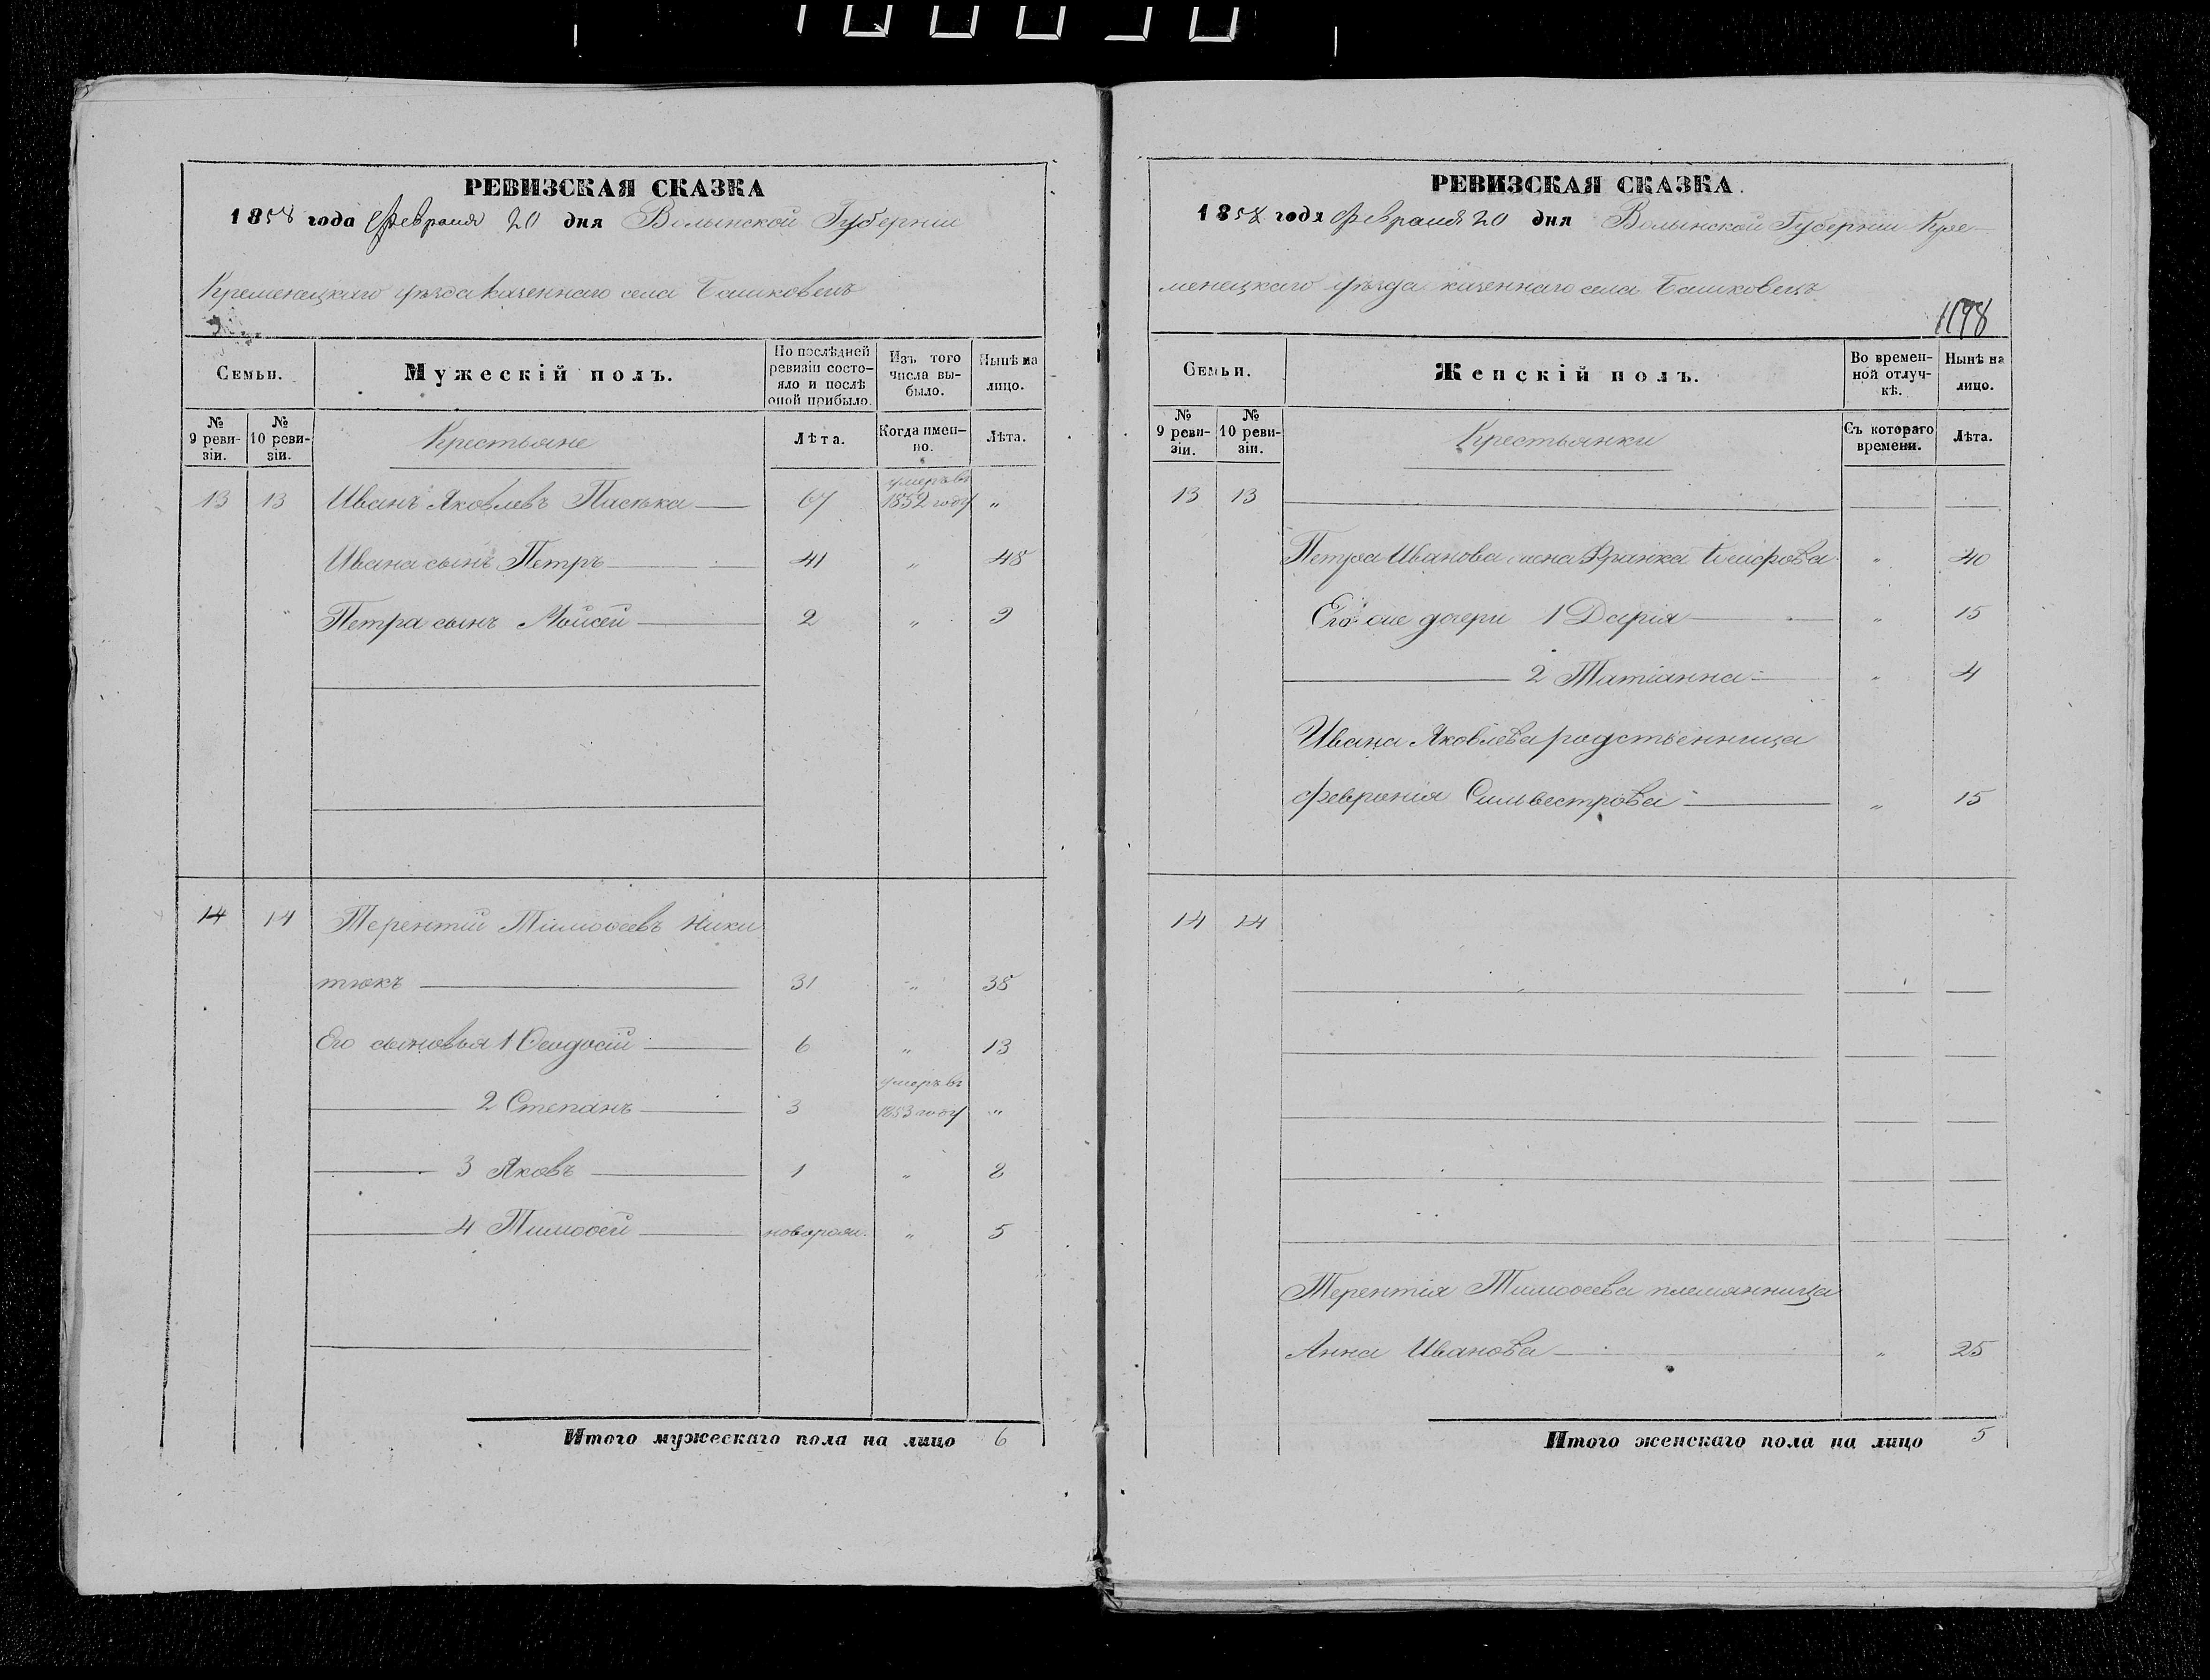 РЕВИЗСКАЯ СКАЗКА
1858 года Февраля 20 дня Волынской Губерніи
Кременецкаго уѣзда казеннаго села Башковецъ
Семьи.
Мужескій полъ.
По послѣдней ревизіи состояло и послѣ оной прибыло.
Изъ того числа выбыло.
Нынѣ на лицо.
№ 9 ревизіи.
№ 10 ревизіи.
Крестьяне
Лѣта.
Когда именно.
Лѣта.
13 13 Иванъ Яковлевъ Пасѣка 67 умеръ въ 1852 году "
Ивана сынъ Петръ 41 " 48
Петра сынъ Мойсей 2 " 9
14 14 Терентій Тимоѳеевъ Ники
тюкъ 31 " 38
Его сыновья 1 Ѳеодосій 6 " 13
2 Степанъ 3 умеръ въ 1853 году "
3 Яковъ 1 " 8
4 Тимоѳей новорож. " 5
Итого мужескаго пола на лицо 6
РЕВИЗСКАЯ СКАЗКА.
1858 года Февраля 20 дня Волынской Губерніи Кре-
менецкаго уѣзда казеннаго села Башковецъ
1198
Семьи.
Женскій полъ.
Во временной отлучкѣ.
Нынѣ на лицо.
№ 9 ревизіи.
№ 10 ревизіи.
Крестьянки
Съ котораго времени.
Лѣта.
13 13
Петра Иванова жена Франка " 40
Его же дочери 1 Дарія " 15
2 Татіанна " 4
Ивана Яковлева родственница
Февронія Сильвестрова " 15
14 14
Терентія Тимоѳеева племянница
Анна Иванова " 25
Итого женскаго пола на лицо 5